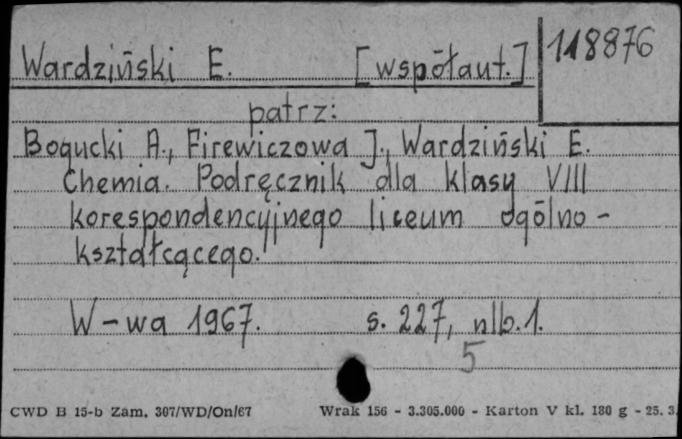 Wardziński E. [współaut.] 118876
patrz:
Bogucki A., Firewiczowa J., Wardziński E.
Chemia. Podręcznik dla klasy VIII
korespondencyjnego liceum ogólno-
kształcącego.
W-wa 1967. s. 227, nlb. 1.
5
CWD B 15-b Zam. 307/WD/On/67 Wrak 156 - 3.305.000 - Karton V kl. 180 g - 25. 3.